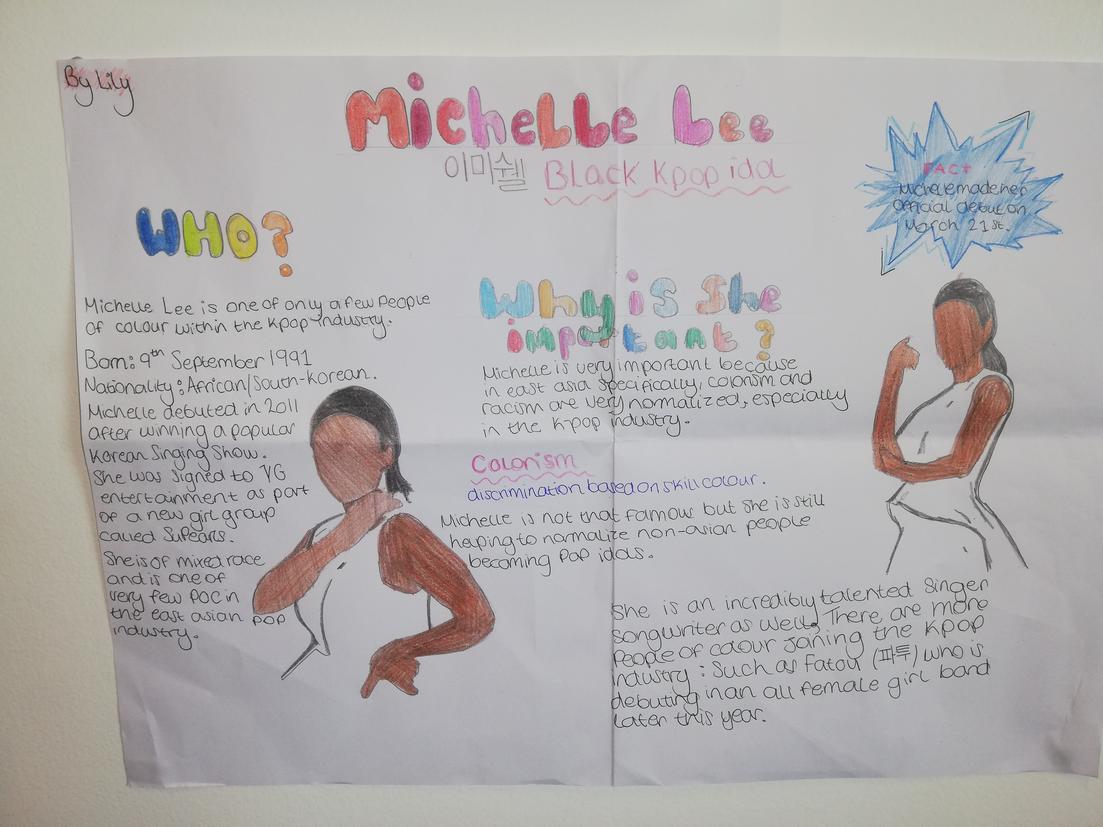 By Lily
Michelle Lee
이미쉘 Black Kpop idol
FACT
Michele made her
official debut on
March 21st.
WHO?
Michelle Lee is one of only a few people
of colour within the Kpop industry.
Born: 9th September 1991
Nationality: African/South-Korean.
Michelle debuted in 2011
after winning a popular
Korean Singing Show.
She was signed to YG
entertainment as part
of a new girl group
called SuPearls.
She is of mixed race
and is one of
very few POC in
the east asian pop
industry.
Why is She
important?
Michelle is very important because
in east asia specifically, colorism and
racism are very normalized, especially
in the K-pop industry.
Colorism
discrimination based on skill colour.
Michelle is not that famous but she is still
helping to normalize non-asian people
becoming Pop idols.
She is an incredibly talented Singer
Songwriter as well. There are more
People of colour joining the Kpop
industry: Such as Fatou (파투) who is
debuting in an all female girl band
later this year.